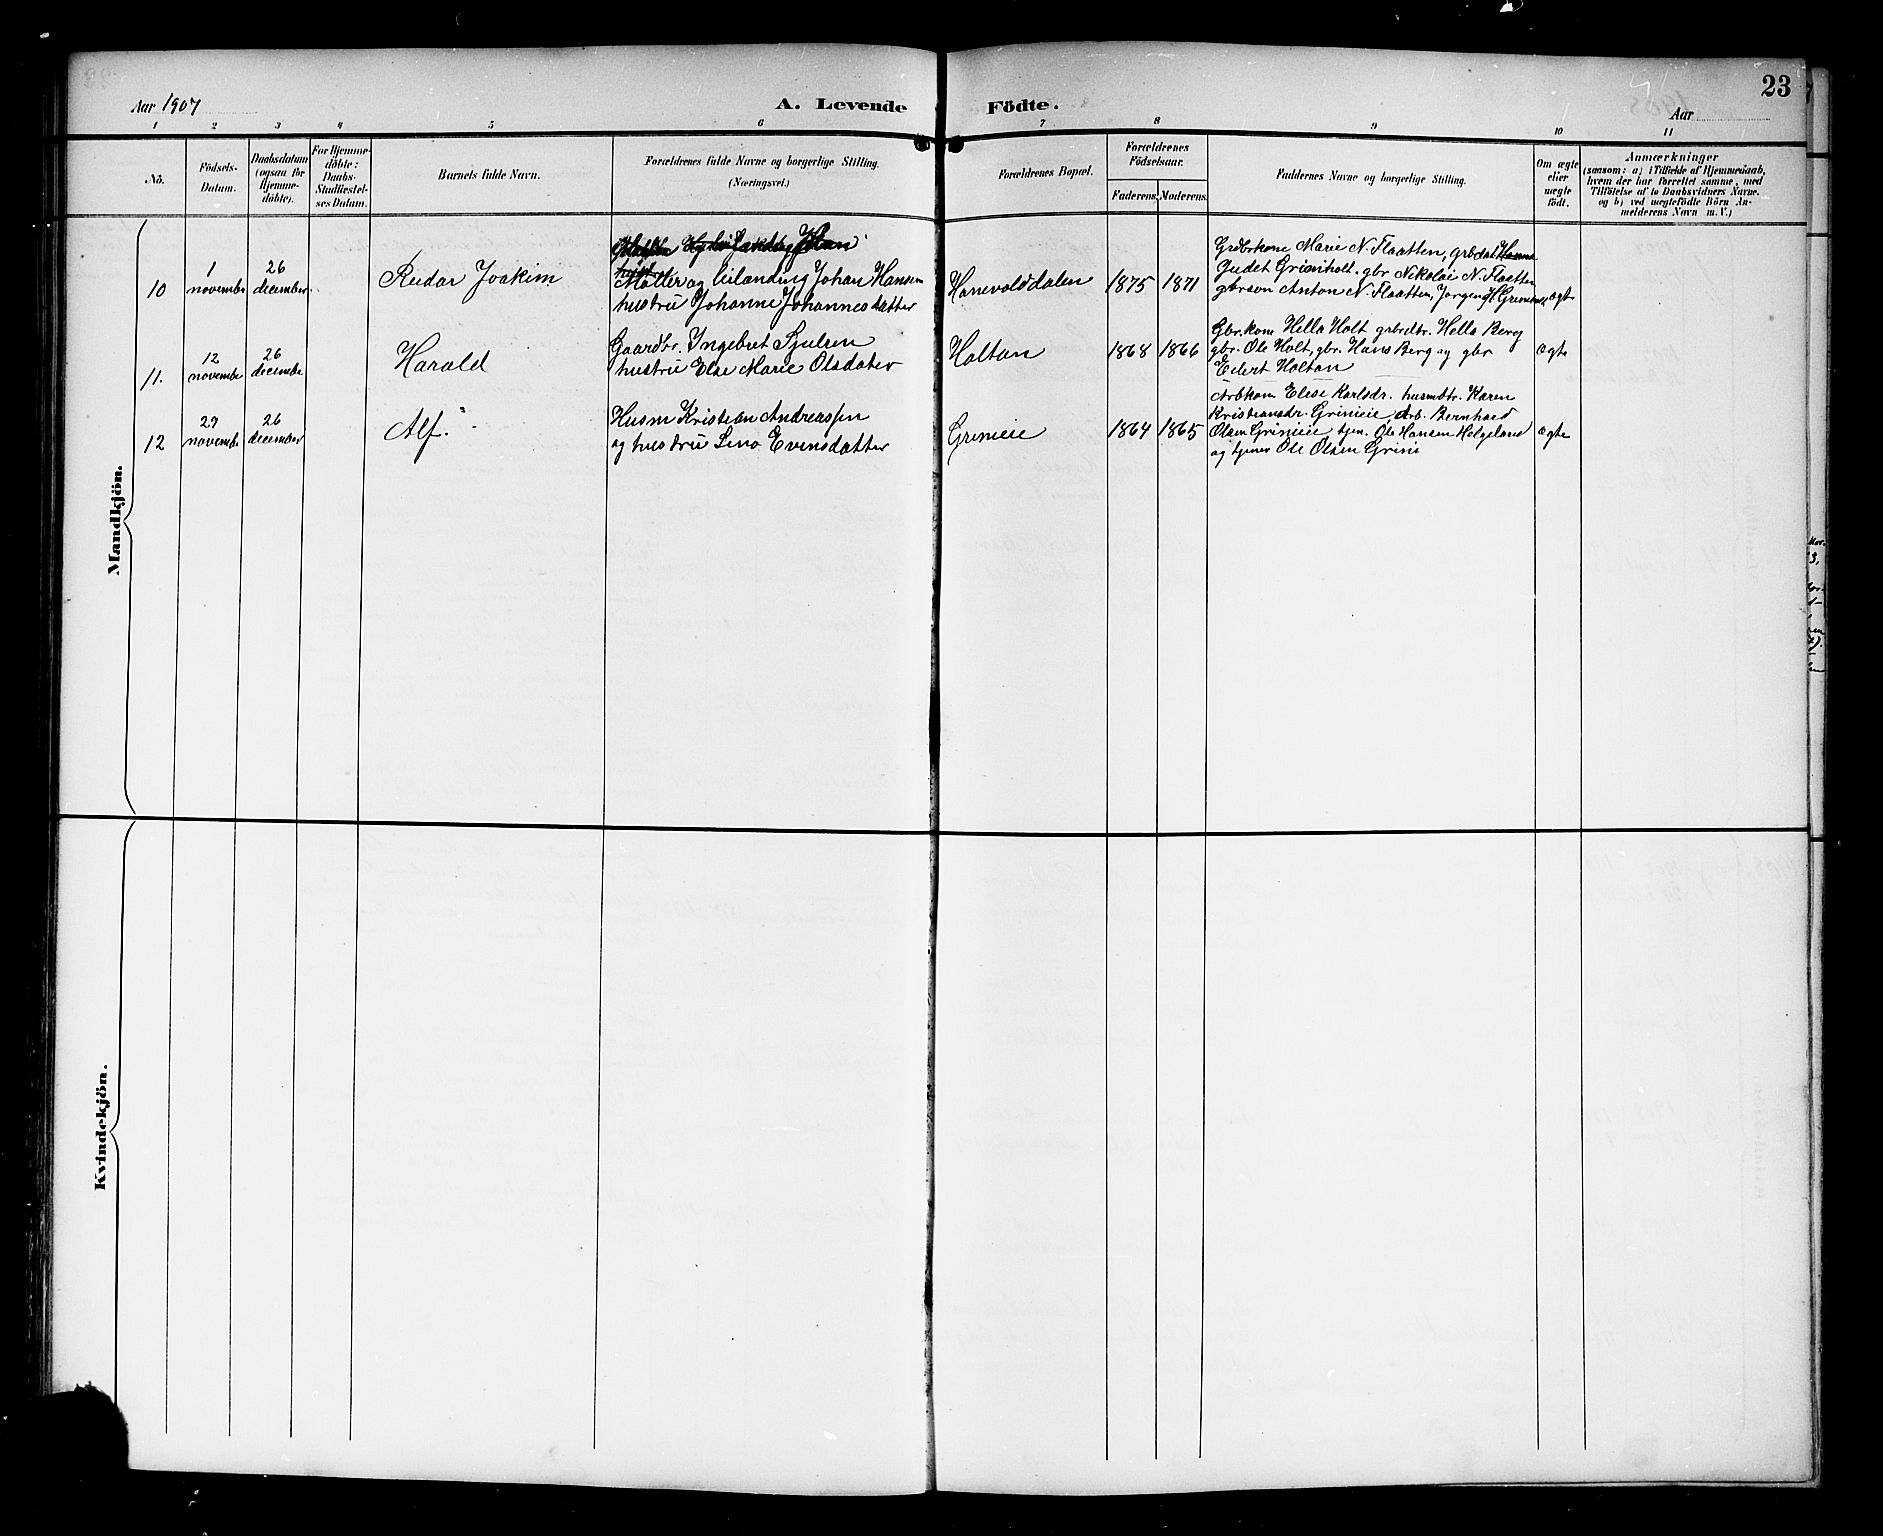 23
Aar 1907
A. Levende Födte.
Aar
1 2 3 4 5 6 7 8 9 10 11
No.
Födsels-
Datum.
Daabsdatum
(ogsaa for
Hjemme-
döbte).
For Hjemme-
döbte:
Daabs-
Stadfæstel-
ses Datum.
Barnets fulde Navn.
Forældrenes fulde Navne og borgerlige Stilling.
(Næringsvei.)
Forældrenes Bopæl.
Forældrenes
Födselsaar.
Faderens. Moderens.
Faddernes Navne og borgerlige Stilling.
Om ægte
eller
uægte
født.
Anmærkninger
(saasom: a) i Tilfælde af Hjemmedaab,
hvem der har forrettet samme, med
Tilföielse af to Daabsvidners Navne.
og b) ved uægtefödte Börn An-
melderens Navn m. V.)
Mandkjön.
10
1
november
26
december
Reidar Joakim
Møller og leilanding Johan Hansen
hustru Johanne Johannesdatter
Hanevolddalen
1875
1871
Grdbrkone Marie N. Flaatten, grbdat Hanna
Gudet Grimiholt. gbr Nikolai N. Flaatten
gbrsøn Anton N. Flaatten, Jørgen H.
ægte
11.
12
november
26
december
Harald
Gaardbr. Ingebret Sjulsen
hustru Else Marie Olsdatter
Holtan
1868
1866
Gbr.kone Hella Holt grbrdtr. Hella Berg
gbr. Ole Holt, gbr. Hans Berg og gbr
Edert Holtan
ægte
12
29
november
26
december
Alf.
Husm Kristian Andreassen
og hustru Lina Evensdatter
Grinieie
1864
1865
Arbkone Elise Karlsdr. husmbtr. Karen
Kristiansdr. Grinieie, Arb. Bernhard
Olsen Grinieie tjen. Ole Hansen Helgeland
og tjener Ole Olsen Grini
ægte
Kvindekjön.